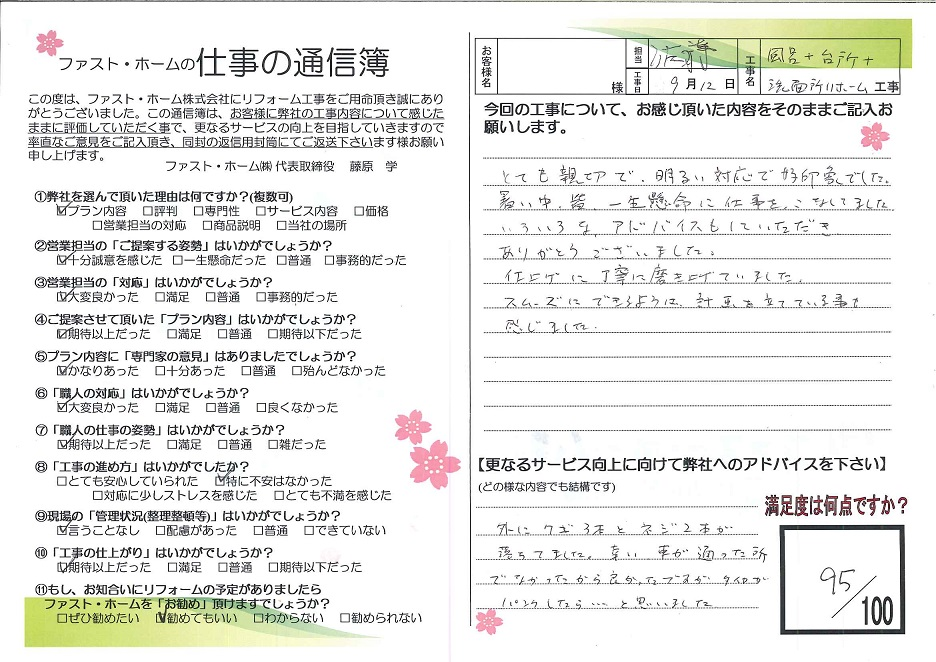 ファスト・ホームの仕事の通信簿
この度は、ファスト・ホーム株式会社にリフォーム工事をご用命頂き誠にあり
がとうございました。この通信簿は、お客様に弊社の工事内容について感じた
ままに評価していただく事で、更なるサービスの向上を目指していきますので
率直なご意見をご記入頂き、同封の返信用封筒にてご返送下さいます様お願い
申し上げます。
ファスト・ホーム㈱ 代表取締役 藤原 学
①弊社を選んで頂いた理由は何ですか?(複数可)
☑プラン内容 □評判 □専門性 □サービス内容 □価格
□営業担当の対応 □商品説明 □当社の場所
②営業担当の「ご提案する姿勢」はいかがでしょうか?
☑十分誠意を感じた □一生懸命だった □普通 □事務的だった
③営業担当の「対応」はいかがでしょうか?
☑大変良かった □満足 □普通 □事務的だった
④ご提案させて頂いた「プラン内容」はいかがでしょうか?
☑期待以上だった □満足 □普通 □期待以下だった
⑤プラン内容に「専門家の意見」はありましたでしょうか?
☑かなりあった □十分あった □普通 □殆んどなかった
⑥「職人の対応」はいかがでしょうか?
☑大変良かった □満足 □普通 □良くなかった
⑦「職人の仕事の姿勢」はいかがでしょうか?
☑期待以上だった □満足 □普通 □雑だった
⑧「工事の進め方」はいかがでしたか?
□とても安心していられた ☑特に不安はなかった
□対応に少しストレスを感じた □とても不満を感じた
⑨現場の「管理状況(整理整頓等)」はいかがでしょうか?
☑言うことなし □配慮があった □普通 □できていない
⑩「工事の仕上がり」はいかがでしょうか?
☑期待以上だった □満足 □普通 □期待以下だった
⑪もし、お知合いにリフォームの予定がありましたら
ファスト・ホームを「お勧め」頂けますでしょうか?
□ぜひ勧めたい ☑勧めてもいい □わからない □勧められない
お客様名 様 担当 工事日 9月12日 工事名 風呂+台所+
洗面所リホーム 工事
今回の工事について、お感じ頂いた内容をそのままご記入お
願いします。
とても親切で、明るい対応で好印象でした。
暑い中、皆、一生懸命に仕事を、こなしてました
いろいろな、アドバイスもしていただき
ありがとうございました。
仕上げに丁寧に磨き上げていました。
スムーズにできるように、計画を立てている事を
感じました。
【更なるサービス向上に向けて弊社へのアドバイスを下さい】
(どの様な内容でも結構です)
満足度は何点ですか?
外にクギ3本とネジ2本が
落ちてました。幸い車が通った所
でなかったから良かったですが タイヤが
パンクしたら…… と思いました
95/100